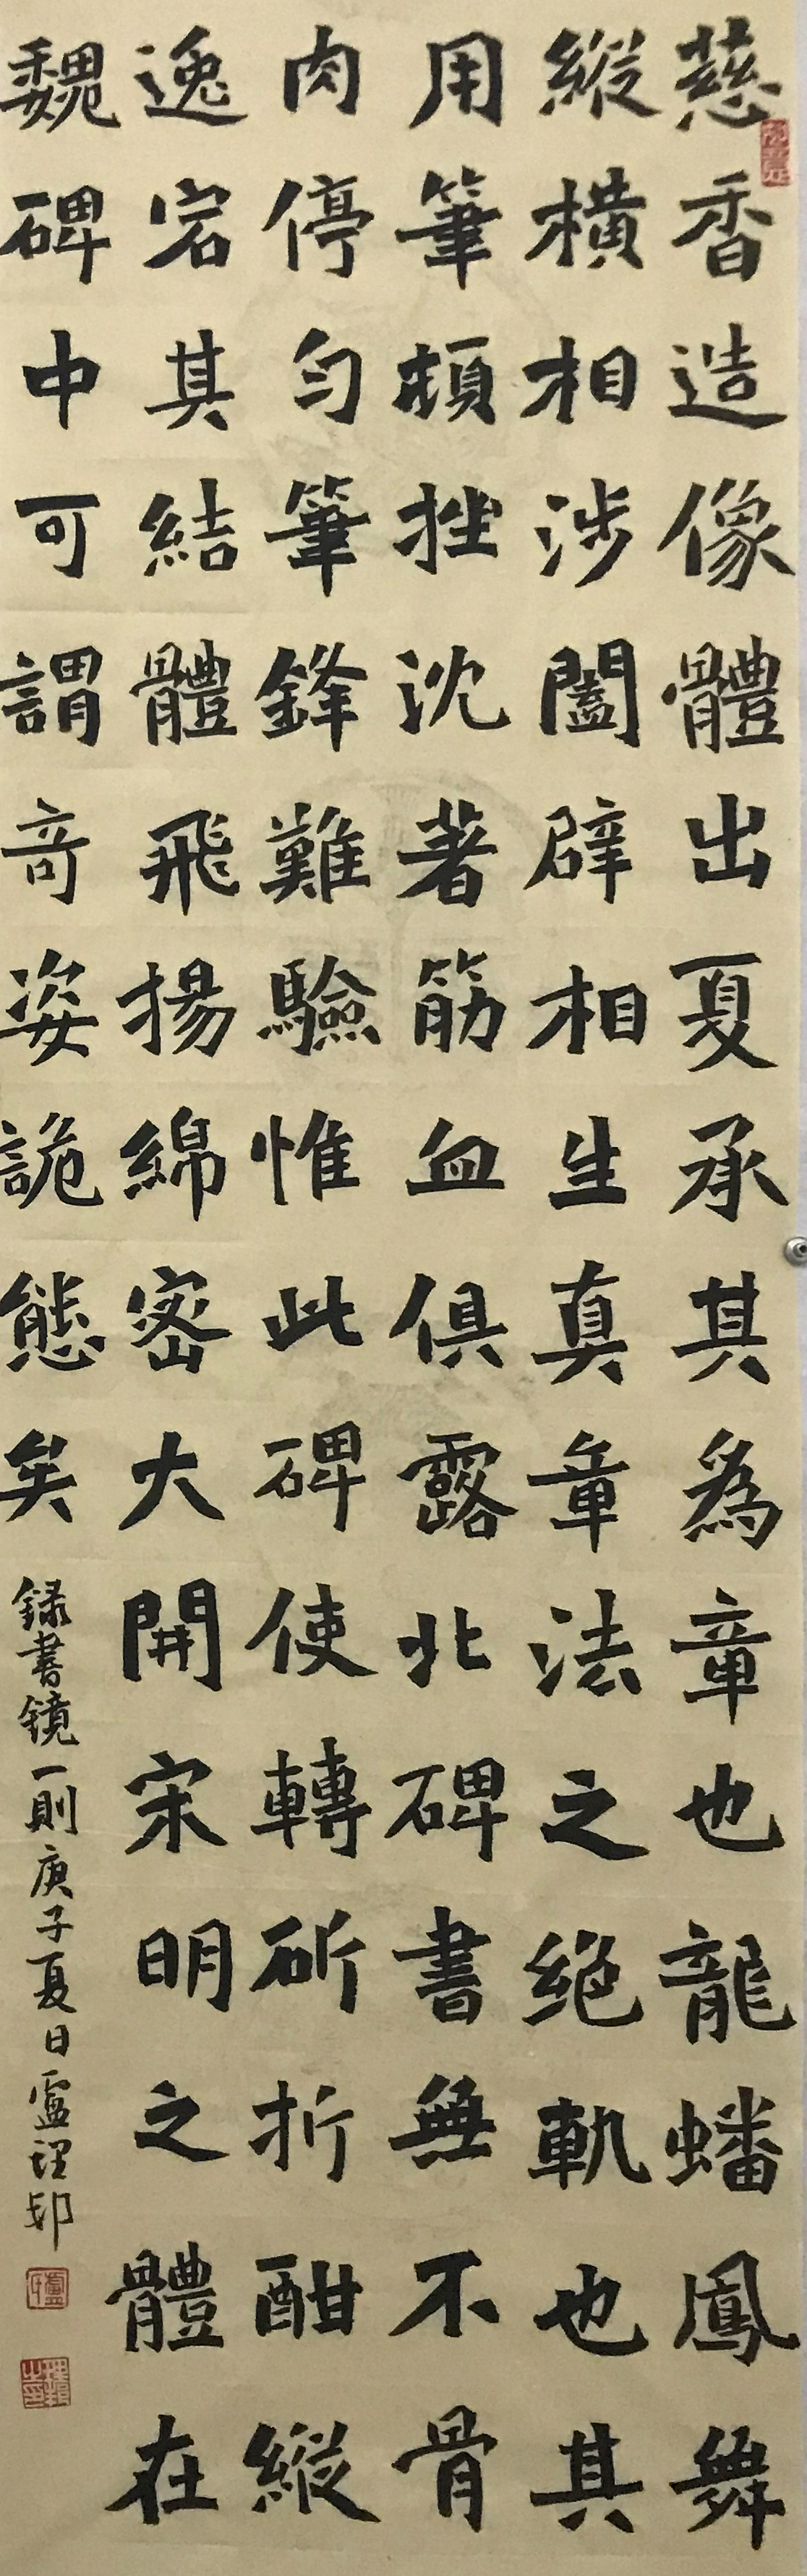 慈香造像體出夏承其爲章也龍蟠鳳舞
縱橫相涉闔辟相生真章法之絶軌也其
用筆頓挫沈著筋血俱露北碑書無不骨
肉停勻筆鋒難驗惟此碑使轉斫折酣縱
逸宕其結體飛揚綿密大開宋明之體在
魏碑中可謂竒姿詭態矣
録書镜一則庚子夏日盧理邨